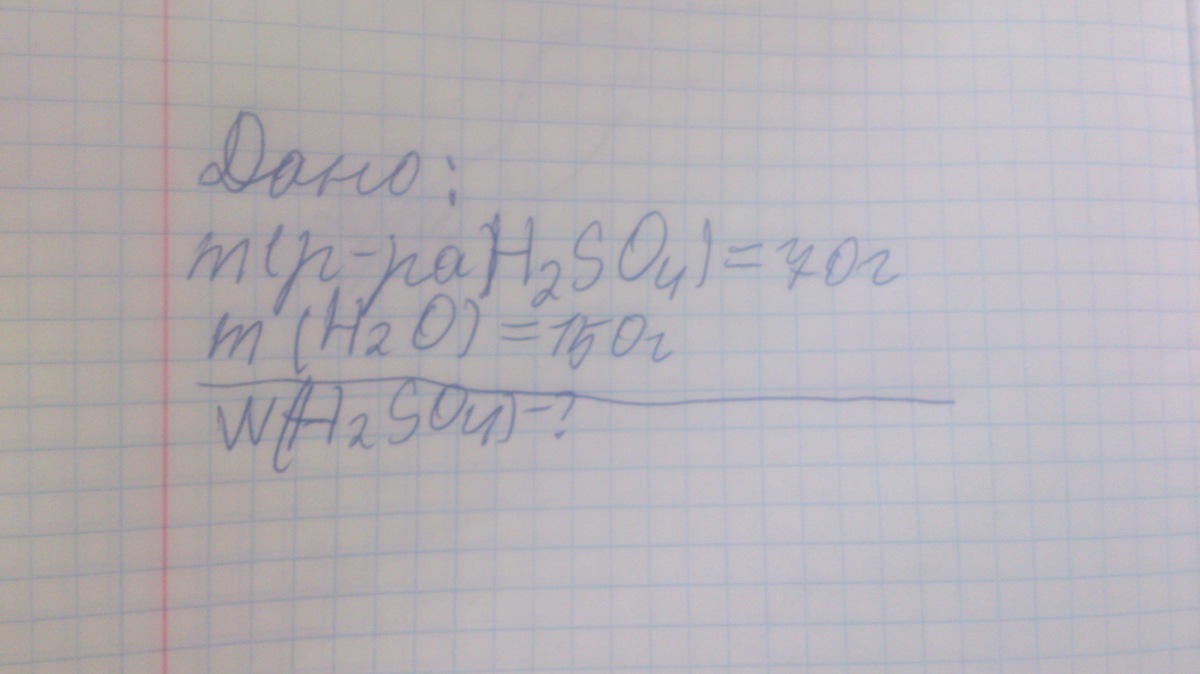 Дано:
m(р-ра)H₂SO₄)=70г
m(H₂O)=150г
W(H₂SO₄)-?